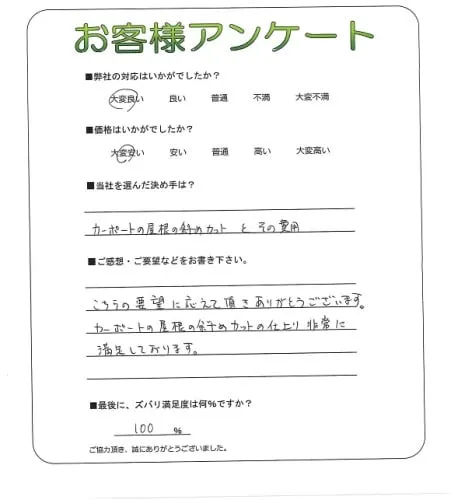 お客様アンケート
■弊社の対応はいかがでしたか？
大変良い 良い 普通 不満 大変不満
■価格はいかがでしたか？
大変安い 安い 普通 高い 大変高い
■当社を選んだ決め手は？
カーポートの屋根の斜めカット と その費用
■ご感想・ご要望などをお書き下さい。
こちらの要望に応えて頂きありがとうございます。
カーポートの屋根の斜めカットの仕上り 非常に
満足しております。
■最後に、ズバリ満足度は何%ですか？
100 %
ご協力頂き、誠にありがとうございました。